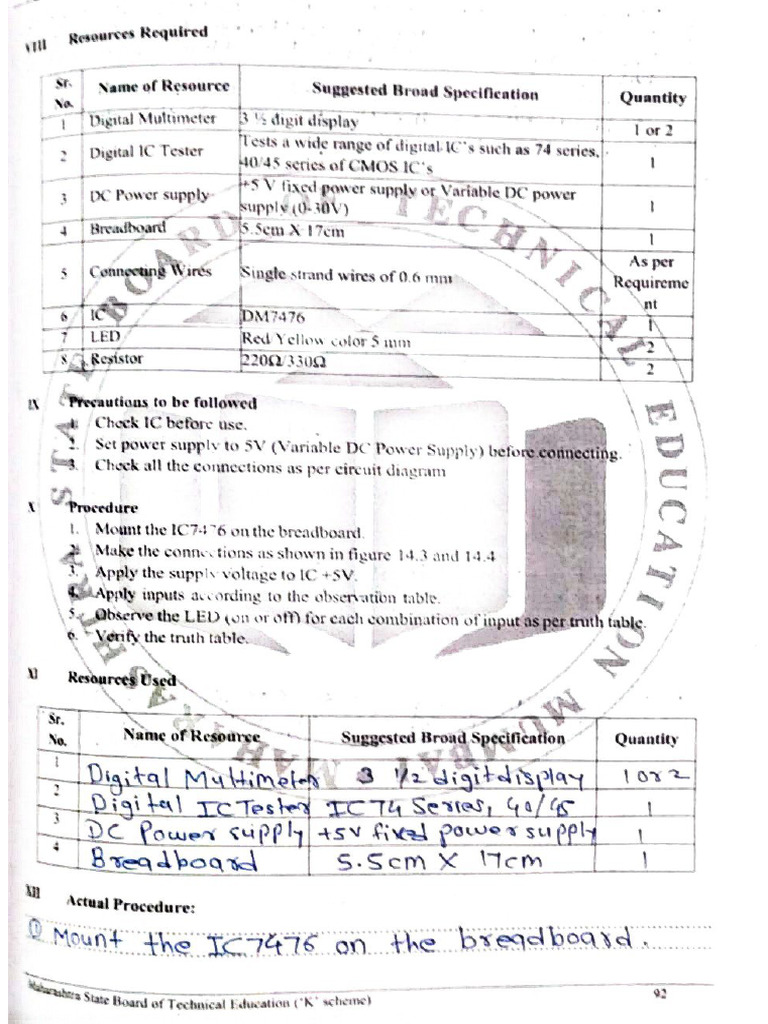 VIII Resources Required
Sr. No. Name of Resource Suggested Broad Specification Quantity
1 Digital Multimeter 3 ½ digit display 1 or 2
2 Digital IC Tester Tests a wide range of digital IC's such as 74 series,
40/45 series of CMOS IC's 1
3 DC Power supply +5 V fixed power supply or Variable DC power
supply (0-30V) 1
4 Breadboard 5.5cm X 17cm 1
5 Connecting Wires Single strand wires of 0.6 mm As per
Requireme
nt
6 IC DM7476 1
7 LED Red Yellow color 5 mm 2
8 Resistor 220Ω/330Ω 2
IX Precautions to be followed
1. Check IC before use.
2. Set power supply to 5V (Variable DC Power Supply) before connecting.
3. Check all the connections as per circuit diagram
X Procedure
1. Mount the IC7476 on the breadboard.
2. Make the connections as shown in figure 14.3 and 14.4
3. Apply the supply voltage to IC +5V.
4. Apply inputs according to the observation table.
5. Observe the LED (on or off) for each combination of input as per truth table.
6. Verify the truth table.
XI Resources Used
Sr. No. Name of Resource Suggested Broad Specification Quantity
1 Digital Multimeter 3 1/2 digit display 1 or 2
2 Digital IC Tester IC74 Series, 40/45 1
3 DC Power supply +5v fixed power supply 1
4 Breadboard 5.5cm X 17cm 1
XII Actual Procedure:
① Mount the IC7476 on the breadboard.
Maharashtra State Board of Technical Education ('K' scheme) 92
MAHARASHTRA STATE BOARD OF TECHNICAL EDUCATION MUMBAI